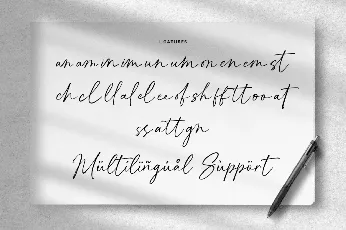 LIGATURES
an am in im un um on en em st
ch cl ll al el ee of sh ff tt oo at
ss att gn
Múltîlíñgúål Süppört